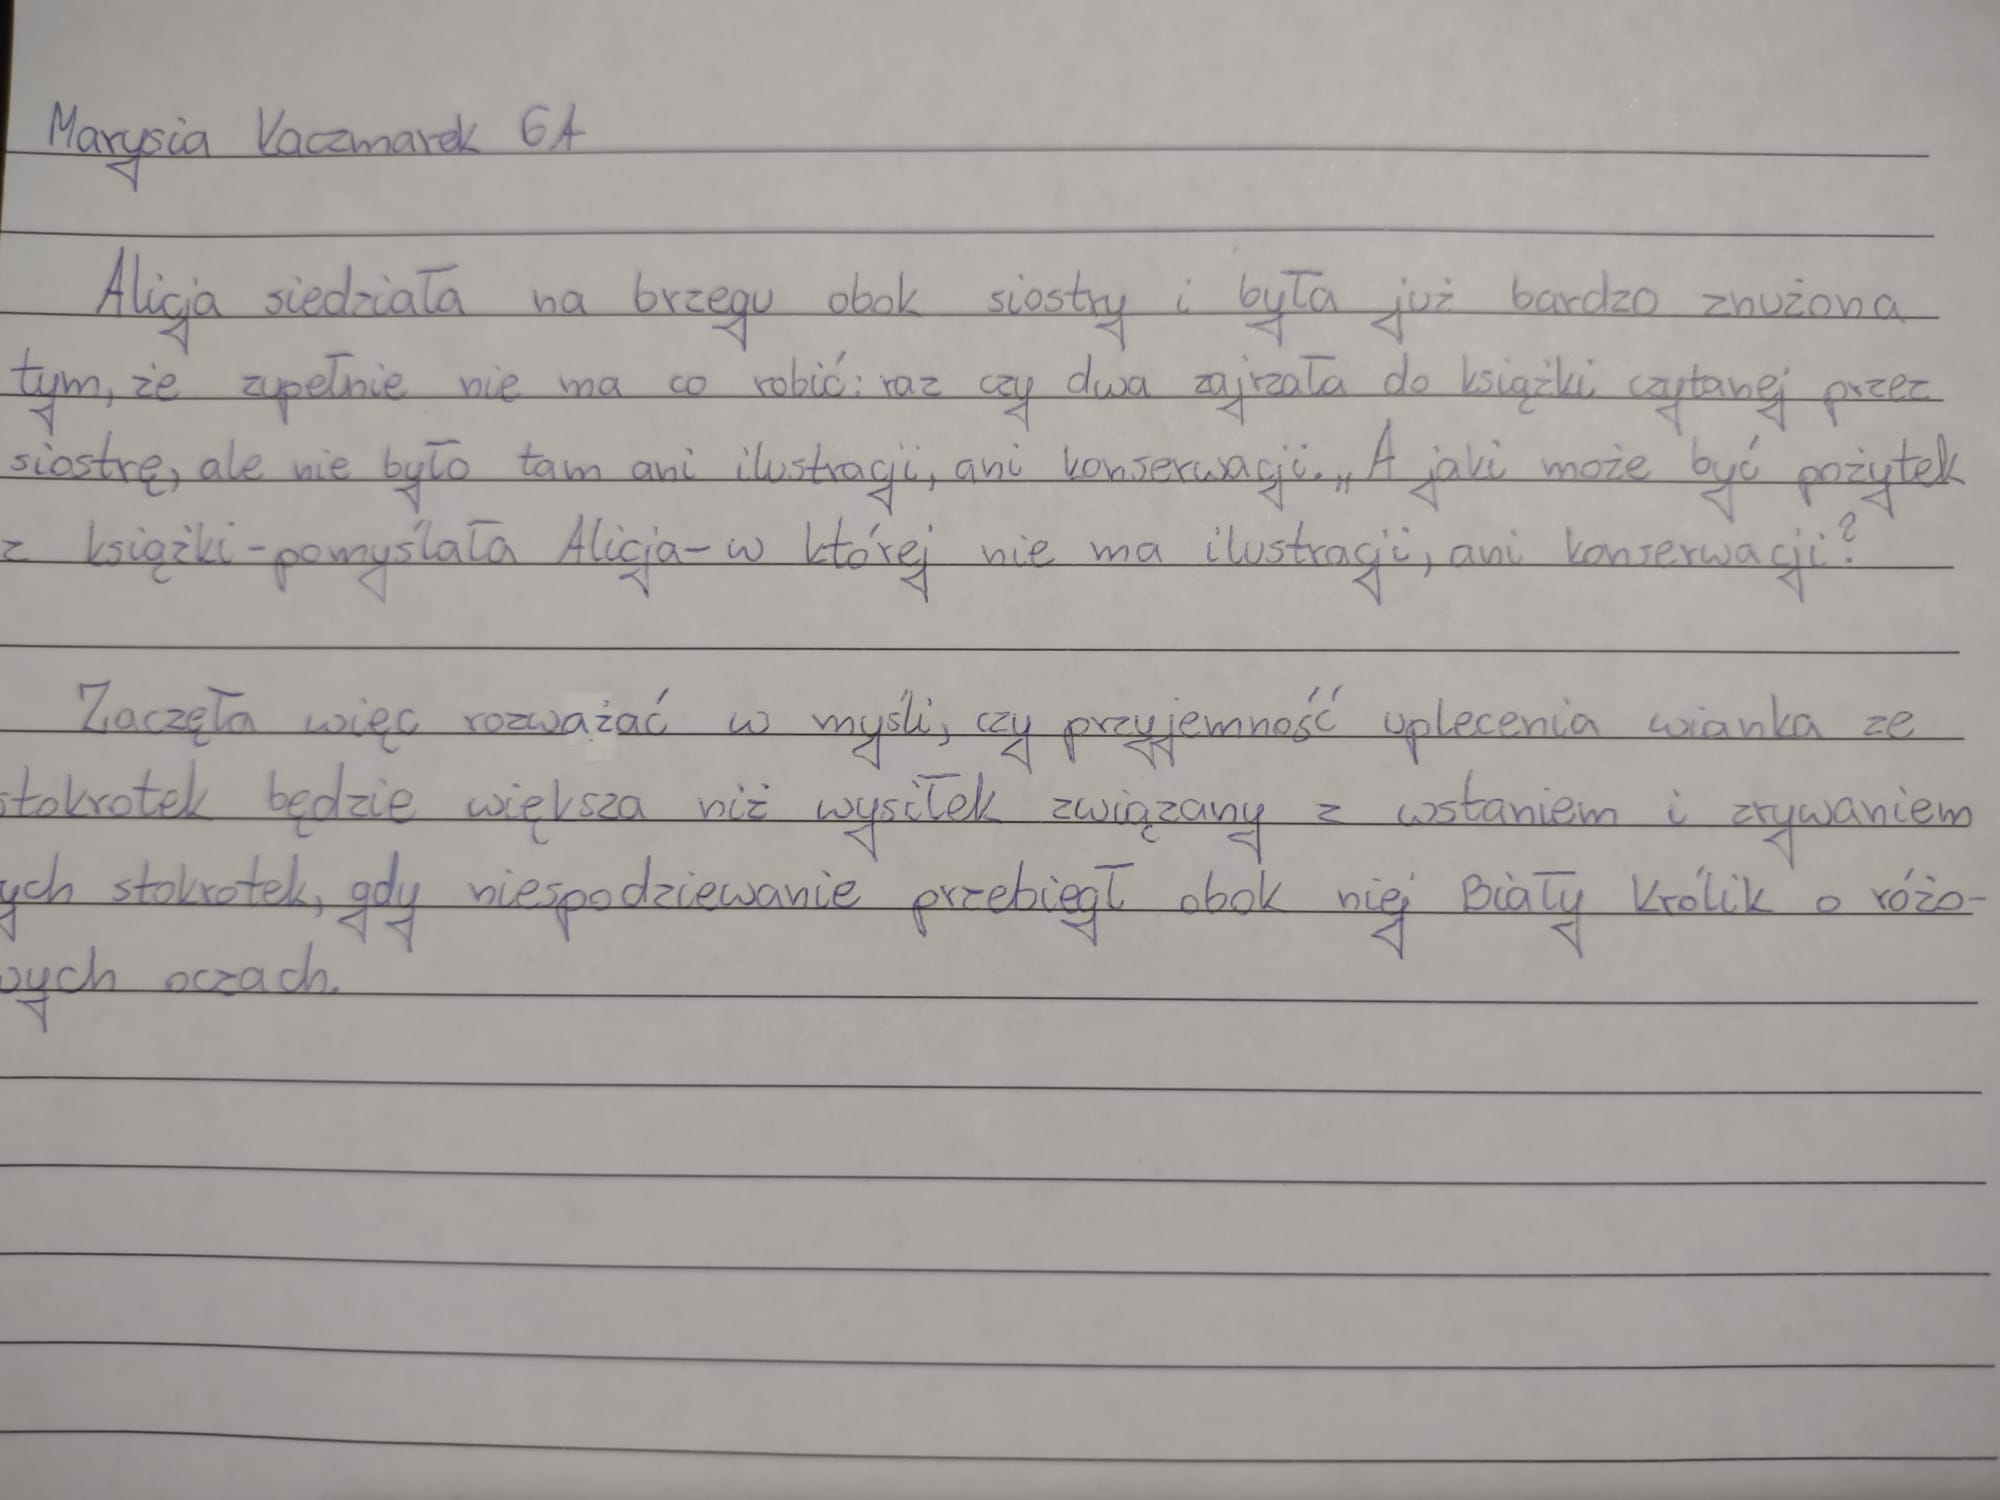 Marysia Kaczmarek 6A
Alicja siedziała na brzegu obok siostry i była już bardzo znużona
tym, że zupełnie nie ma co robić: raz czy dwa zajrzała do książki czytanej przez
siostrę, ale nie było tam ani ilustracji, ani konserwacji. „A jaki może być pożytek
z książki - pomyślała Alicja - w której nie ma ilustracji, ani konserwacji?
Zaczęła więc rozważać w myśli, czy przyjemność uplecenia wianka ze
stokrotek będzie większa niż wysiłek związany z wstaniem i zrywaniem
ych stokrotek, gdy niespodziewanie przebiegł obok niej Biały Królik o różo-
wych oczach.